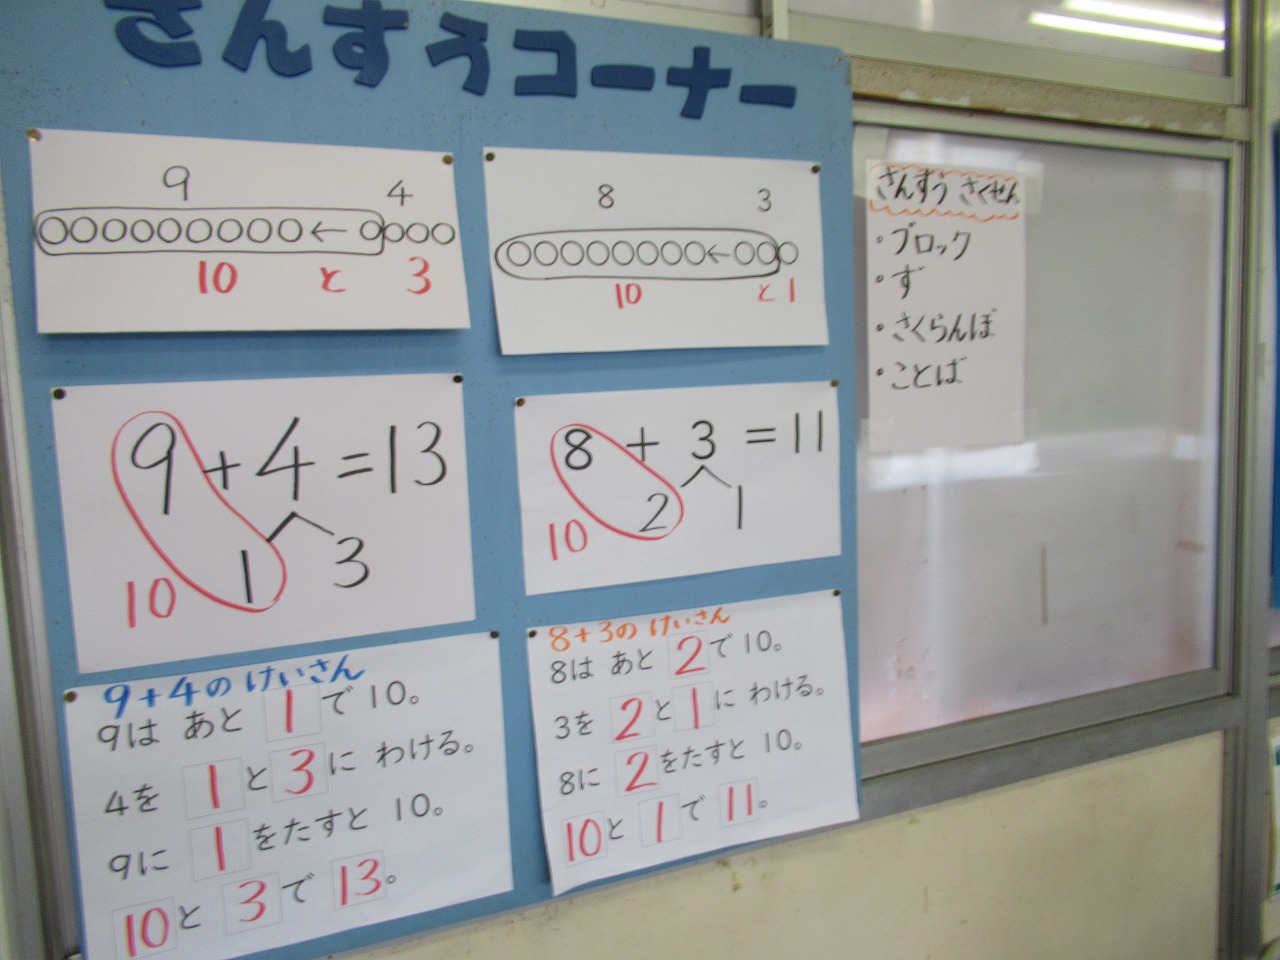 さんすうコーナー
9 4
○○○○○○○○○←○○○○
10 と 3
8 3
○○○○○○○○←○○○
10 と 1
9+4=13
1 3
10
8+3=11
2 1
10
9+4の けいさん
9は あと 1で 10。
4を 1と3に わける。
9に 1をたすと 10。
10と 3で 13。
8+3の けいさん
8は あと 2で 10。
3を 2と1に わける。
8に 2をたすと 10。
10と 1で 11。
さんすう さくせん
・ブロック
・ず
・さくらんぼ
・ことば